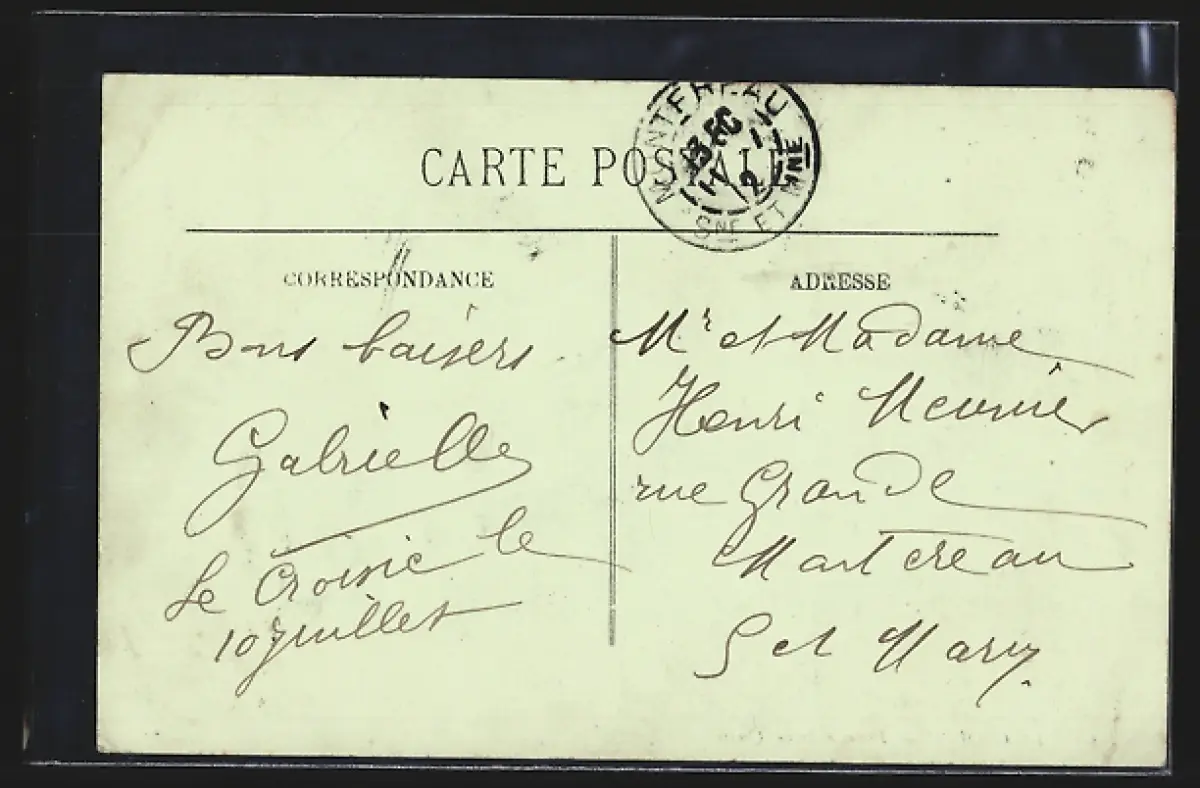 CARTE POSTALE
MONTEREAU
SNE ET MNE
CORRESPONDANCE
Bons baisers
Gabrielle
Le Croisic le
10 juillet
ADRESSE
Mr et Madame
Henri Meunier
rue Grande
Montereau
S et Marn